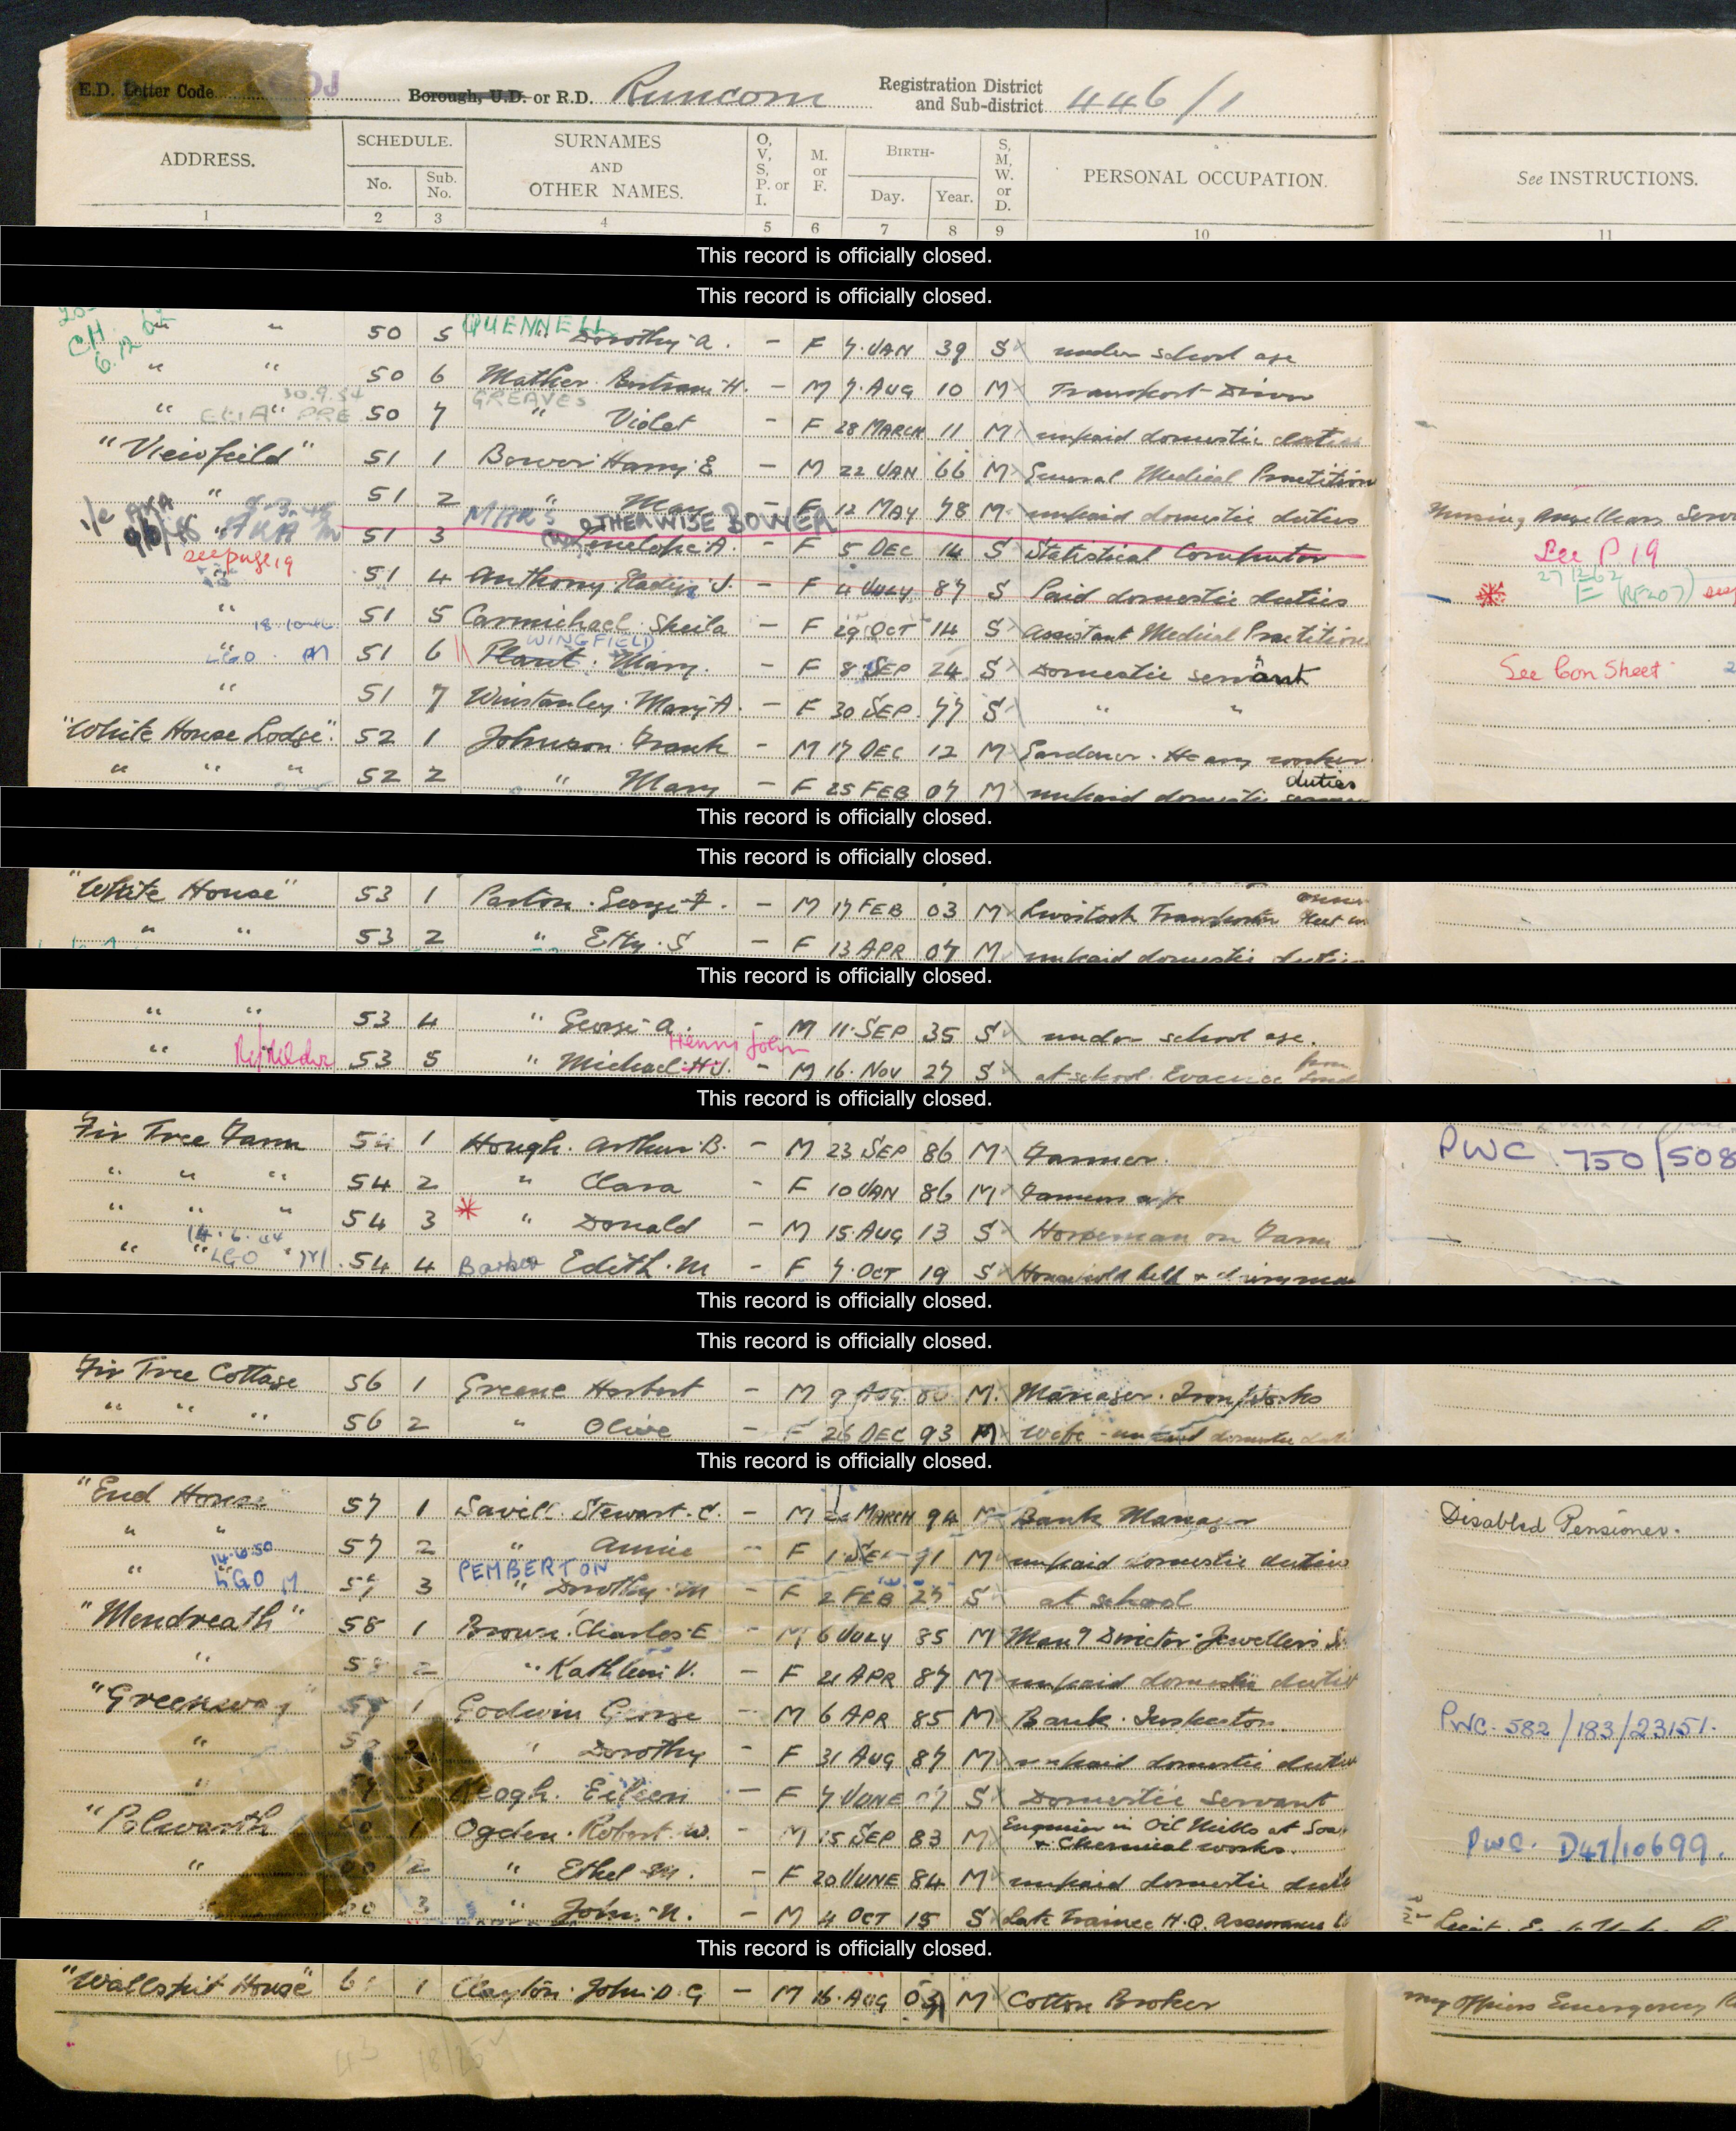 E.D. Letter Code
Borough, U.D. or R.D. Runcorn Registration District and Sub-district 446/1
ADDRESS. SCHEDULE. No. Sub. No. SURNAMES AND OTHER NAMES. O, V, S, P. or I. M. or F. BIRTH- Day. Year. S, M, W. or D. PERSONAL OCCUPATION. See INSTRUCTIONS.
1 2 3 4 5 6 7 8 9 10 11
This record is officially closed.
This record is officially closed.
CH 6.12
QUENNELL
" " 50 5 " Dorothy A. - F 7 JAN 39 S under school age
" " 50 6 Mather Bertram H. - M 7 AUG 10 M Transport Driver
30.9.54 GREAVES
" " 50 7 " Violet - F 28 MARCH 11 M unpaid domestic duties
"Viewfeild" 51 1 Bower Harry E - M 22 JAN 66 M General Medical Practition
" 51 2 " Mary - F 12 MAY 78 M unpaid domestic duties Nursing
OTHERWISE BOWER
" 51 3 Penelope A. - F 5 DEC 14 S Statistical Computor See P 19
see page 19
" 51 4 Anthony J. - F 4 JULY 87 S Paid domestic duties
" 51 5 Carmichael Sheila - F 29 OCT 14 S Assistant Medical Practition
WINGFIELD
" 51 6 Plant Mary. - F 8 SEP 24 S Domestic servant See Con Sheet
" 51 7 Winstanley Mary A. - F 30 SEP 77 S " "
"White House Lodge" 52 1 Johnson Frank - M 17 DEC 12 M Gardener. Heavy worker
" " " 52 2 " Mary - F 25 FEB 07 M unpaid domestic duties
This record is officially closed.
This record is officially closed.
"White House" 53 1 Parton George F. - M 17 FEB 03 M Livestock Transporter
" " 53 2 " Etty S - F 13 APR 07 M unpaid domestic duties
This record is officially closed.
" " 53 4 " George A. - M 11 SEP 35 S under school age.
Henry John
" 53 5 " Michael H J. - M 16 NOV 27 S at school. from
This record is officially closed.
Fir Tree Farm 54 1 Hough Arthur B. - M 23 SEP 86 M Farmer. PWC 750/508
" " " 54 2 " Clara - F 10 JAN 86 M Farmers wife
" " " 54 3 " Donald - M 15 AUG 13 S Horseman on Farm
14.6.44
" " LGO " 54 4 Barker Edith M - F 7 OCT 19 S Household help +
This record is officially closed.
This record is officially closed.
Fir Tree Cottage 56 1 Greene Herbert - M 9 AUG M. Manager. Iron Works
" " " 56 2 " Olive - F 26 DEC 93 M Wife - unpaid domestic
This record is officially closed.
"End House" 57 1 Savill Stewart C. - M MARCH 94 M Bank Manager Disabled Pensioner.
" " 57 2 " Annie - F 1 SEP 91 M unpaid domestic duties
14.6.50 PEMBERTON
" LGO M 57 3 " Dorothy M - F 2 FEB 27 S at school
"Mendreath" 58 1 Brown Charles E - M 6 JULY 85 M Man'g Director Jewellers
" 58 2 " Kathleen V. - F 21 APR 87 M unpaid domestic duties
"Greenway" 59 1 Godwin George - M 6 APR 85 M Bank Inspector. PWC. 582/183/23151.
" 59 2 " Dorothy - F 31 AUG 87 M unpaid domestic duties
" 59 3 Keogh. Eileen - F 7 JUNE 07 S Domestic Servant
"Polwarth" 60 1 Ogden Robert W. - M 15 SEP 83 M Engineer in Oil Mills at Soap + Chemical works. PWC. D47/10699.
" 60 2 " Ethel M. - F 20 JUNE 84 M unpaid domestic
60 3 " John N. - M 4 OCT 15 S Late Trainee H.Q. Assurance
This record is officially closed.
"Wallspit House" 61 1 Clayton John D G - M 16 AUG M Cotton Broker Officers Emergency